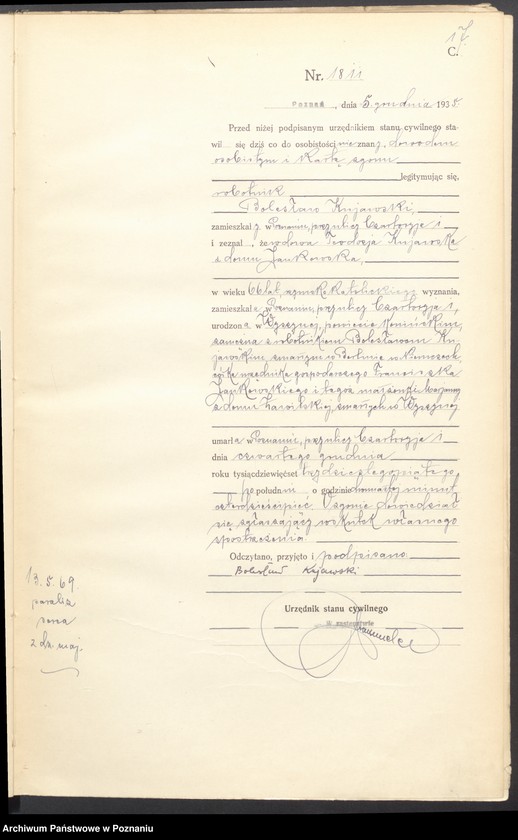 17.
C.
Nr. 1811
Poznań, dnia 5 grudnia 1935.
Przed niżej podpisanym urzędnikiem stanu cywilnego sta-
wił się dziś co do osobistości nieznany, dowodem
osobistym i kartą zgonu
legitymując się,
robotnik
Bolesław Kujawski,
zamieszkały w Poznaniu, przy ulicy Czartorja 1
i zeznał, że wdowa Teodozja Kujawska
z domu Jankowska,
w wieku 66 lat, rzymsko katolickiego wyznania,
zamieszkała w Poznaniu, przy ulicy Czartorja 1,
urodzona w powiecie Konińskim,
zamężna z robotnikiem Bolesławem Ku-
jawskim zmarłym w Berlinie w Niemczech
córka urzędnika gospodarczego Franciszka
Jankowskiego i tegoż małżonki
z domu zmarłych w
umarła w Poznaniu, przy ulicy Czartorja 1
dnia czwartego grudnia
roku tysiącdziewięćset trzydziestego piątego,
po południu o godzinie minut
czterdzieści pięć. O zgonie dowiedział
się zgłaszający wskutek własnego
spostrzeżenia.
Odczytano, przyjęto i podpisano
Bolesław Kujawski
Urzędnik stanu cywilnego
W zastępstwie
13. 5. 69
paraliż
serca
z dz. maj.
Archiwum Państwowe w Poznaniu